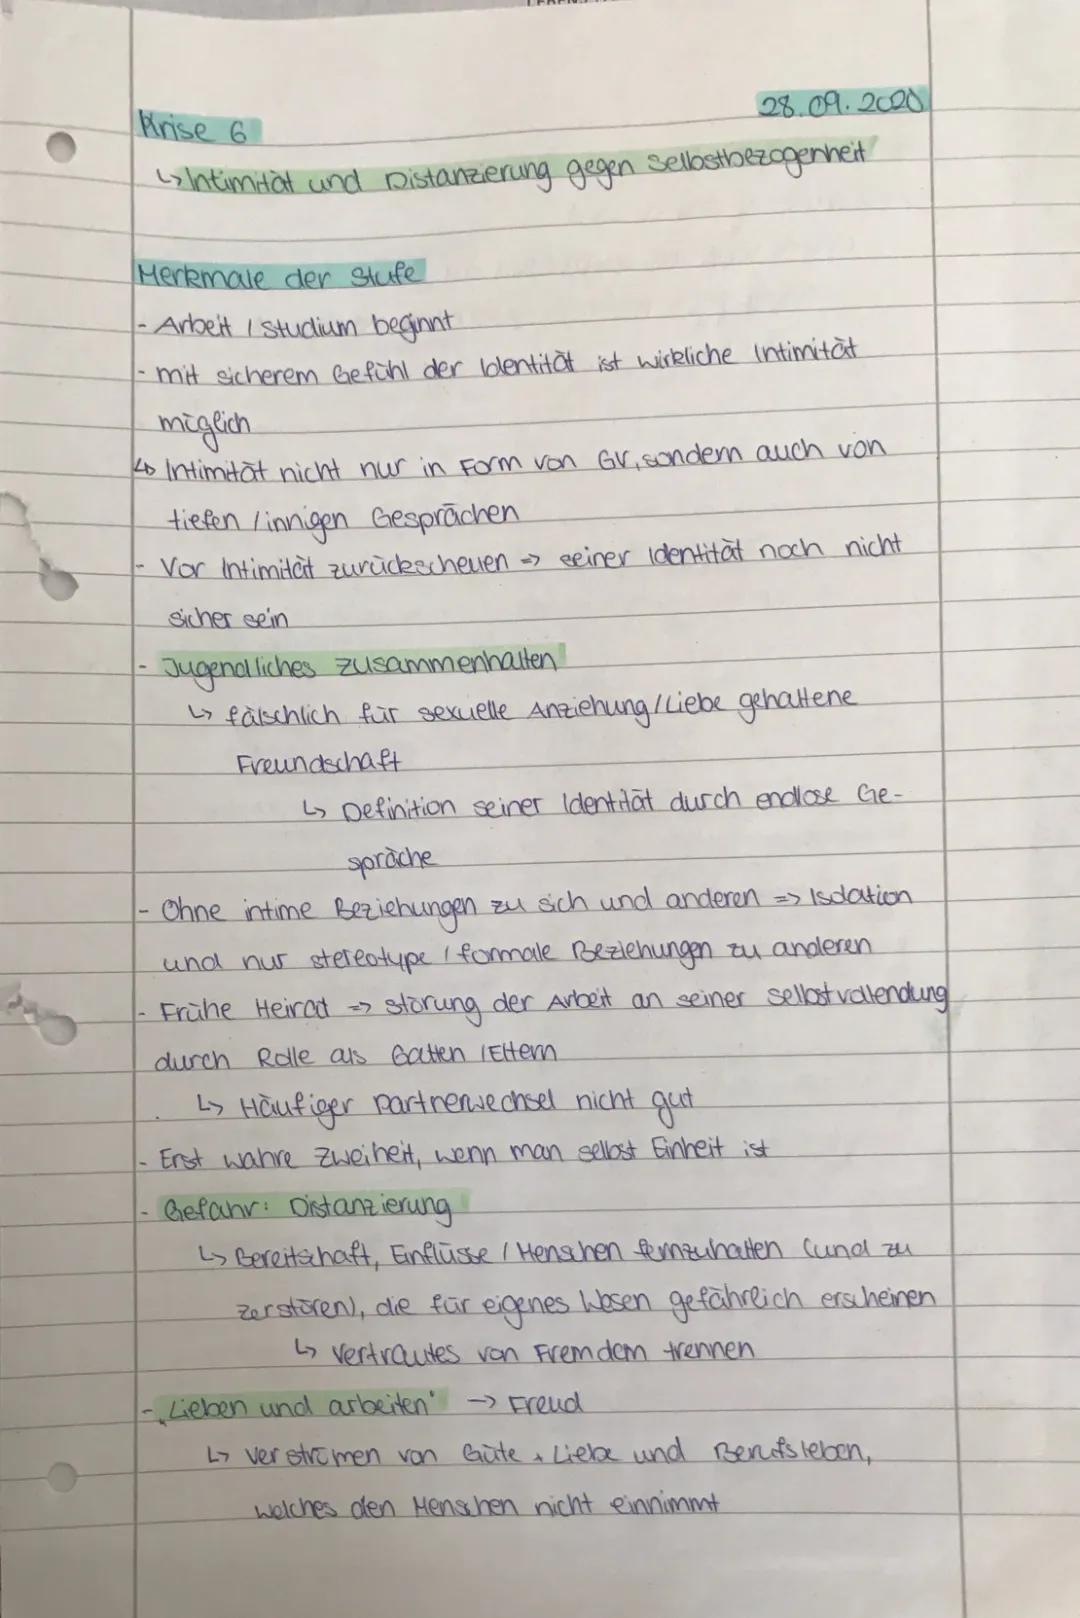 Krise 6
28.09.2020
↳ Intimität und Distanzierung gegen Selbstbezogenheit
Merkmale der Stufe
- Arbeit / Studium beginnt
- mit sicherem Gefühl der Identität ist wirkliche Intimität
möglich
↳ Intimität nicht nur in Form von GV, sondern auch von
tiefen / innigen Gesprächen
- Vor Intimität zurückscheuen => seiner Identität noch nicht
sicher sein
- Jugendliches zusammenhalten
↳ fälschlich für sexuelle Anziehung/Liebe gehaltene
Freundschaft
↳ Definition seiner Identität durch endlose Ge-
spräche
- Ohne intime Beziehungen zu sich und anderen => Isolation
und nur stereotype / formale Beziehungen zu anderen
- Frühe Heirat => störung der Arbeit an seiner selbstvollendung
durch Rolle als Gatten / Eltern
↳ Häufiger partnerwechsel nicht gut
- Erst wahre Zweiheit, wenn man selbst Einheit ist
- Gefahr: Distanzierung
↳ Bereitschaft, Einflüsse / Menschen fernzuhalten (und zu
zerstören), die für eigenes Wesen gefährlich erscheinen
↳ Vertrautes von Fremdem trennen
- „Lieben und arbeiten" -> Freud
↳ Verströmen von Güte + Liebe und Berufsleben,
welches den Menschen nicht einnimmt